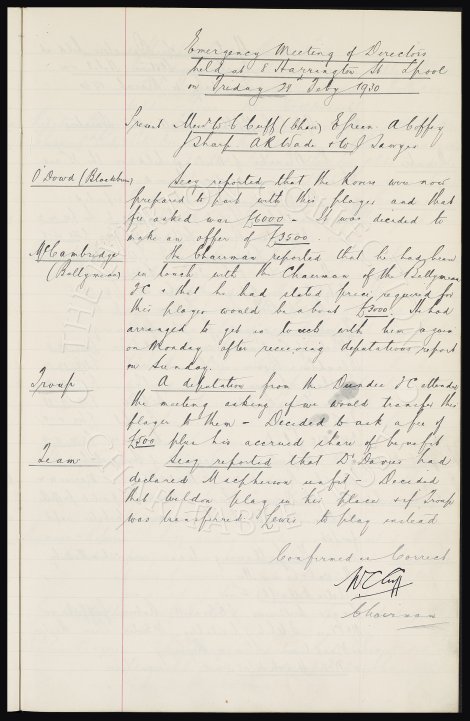 Emergency Meeting of Directors
held at 8 Harrington St Lpool
on Friday 28th Feby 1930
Present Messrs W C Cuff (Chair) E Green A Coffey
J Sharp. A R Wade & W J Sawyer
O'Dowd (Blackburn)
Secy reported that the Rovers were now
prepared to part with this player and that
fee asked was £6000 - It was decided to
make an offer of £3500.
McCambridge
(Ballymena)
The Chairman reported that he had been
in touch with the Chairman of the Ballymena
FC & that he had stated price required for
this player would be about £3000. He had
arranged to get in touch with him again
on Monday after receiving deputations report
on Sunday.
Troup
A deputation from the Dundee FC attended
the meeting asking if we would transfer this
player to them - Decided to ask a fee of
£500 plus his accrued share of benefit
Team
Secy reported that Dr Davies had
declared Macpherson unfit - Decided
that Weldon play in his place & if Troup
was transferred Lewis to play instead
Confirmed as Correct
W C Cuff
Chairman